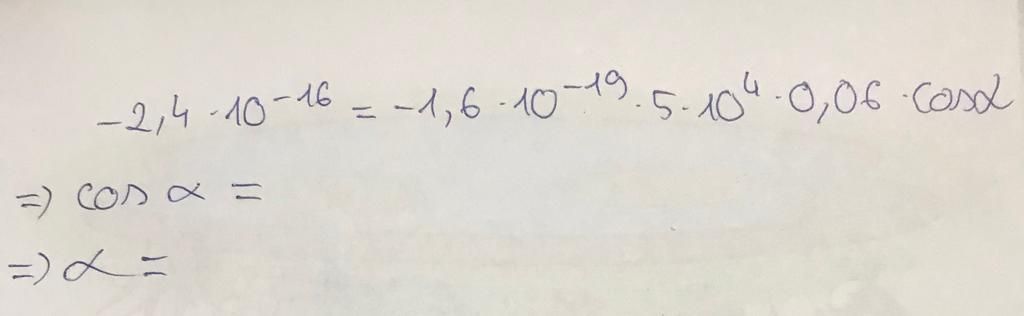 -2,4 · 10⁻¹⁶ = -1,6 · 10⁻¹⁹ · 5 · 10⁴ · 0,06 · cosα
=> cos α =
=> α =